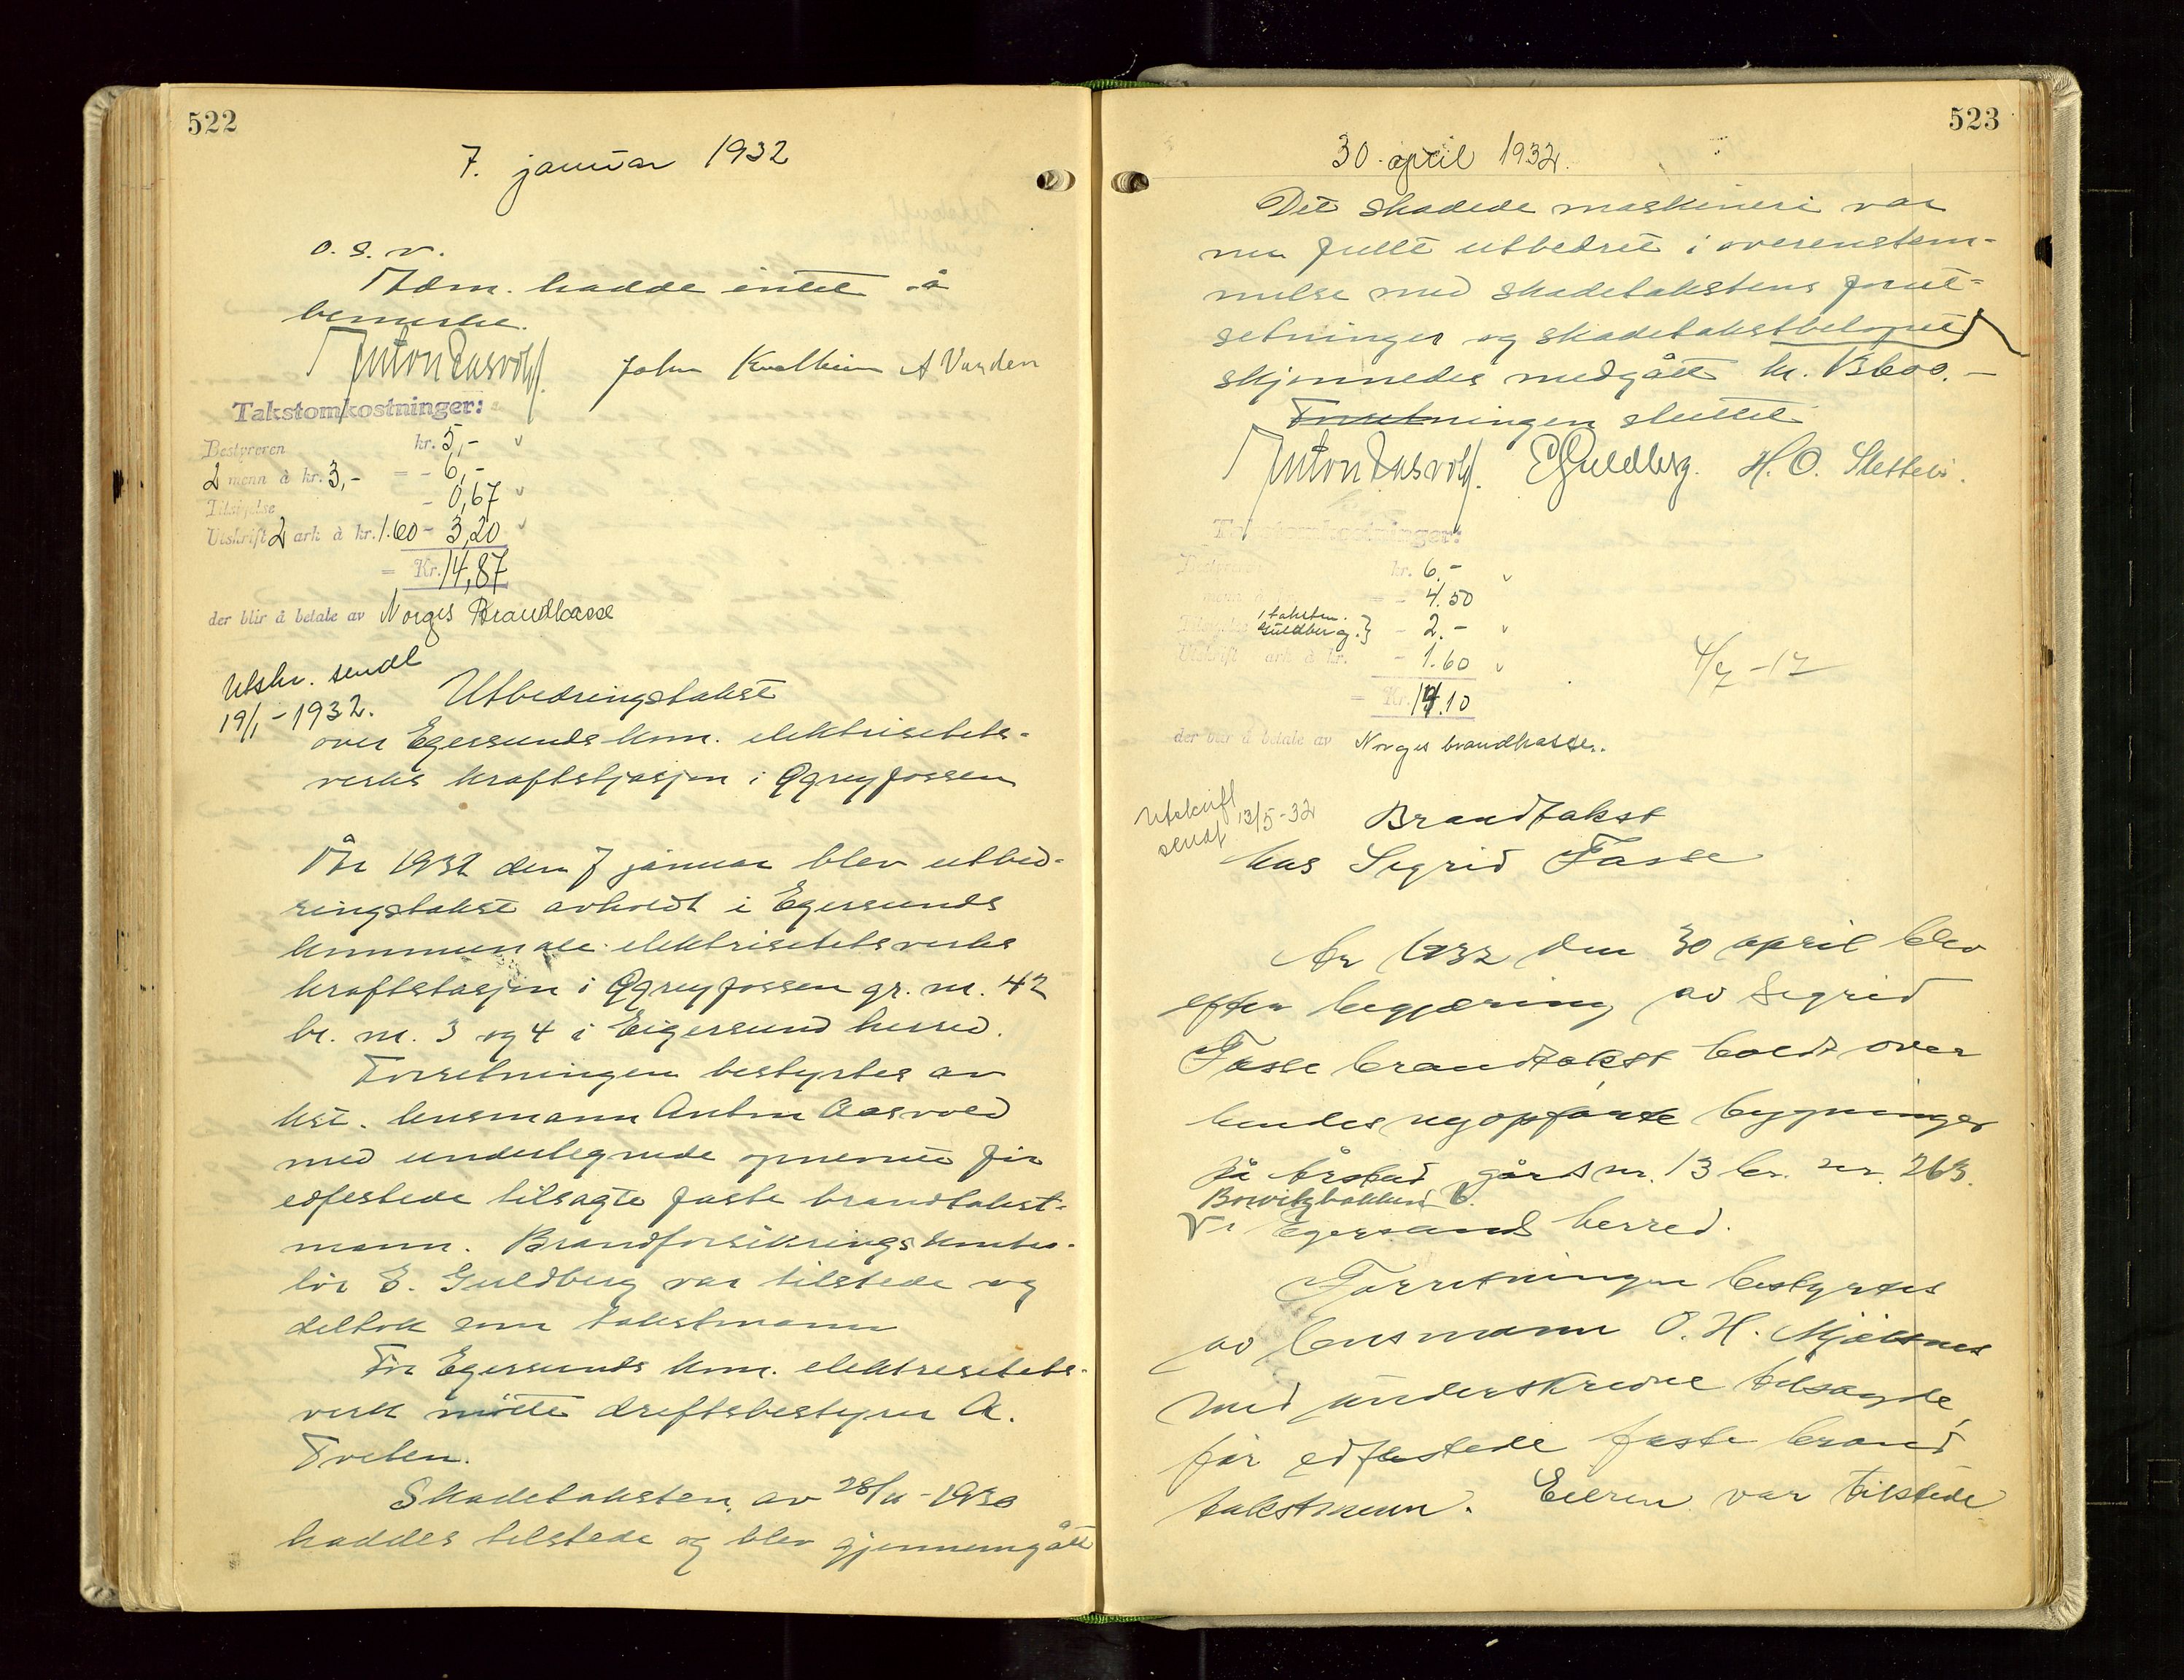 522
7. januar 1932
o. s. v.
Adm. hadde intet å
bemerke.
Anton Aasvold John Kvalheim A Varden
Takstomkostninger:
Bestyreren kr. 5,-
2 menn à kr. 3,- = - 6,-
Tilsigelse - 0,67
Utskrift 2 ark à kr. 1.60 - 3,20
= Kr. 14,87
der blir å betale av Norges Brandkasse
Utskr. sendt
19/1-1932.
Utbedringstakst
over Egersunds kom. elektrisitets-
verks kraftstasjon i Øgreyfossen
År 1932 den 7 januar blev utbed-
ringstakst avholdt i Egersunds
kommunale elektrisitetsverks
kraftstasjon i Øgreyfossen gr. nr. 42
br. nr. 3 og 4 i Eigersund herred.
Forretningen bestyrtes av
kst. lensmann Anton Aasvold
med undertegnede opnevnte før
edfestede tilsagte faste brandtakst-
mann. Brandforsikringskontro-
lør E. Guldberg var tilstede og
deltok som takstmann
For Egersunds kom. elektrisitets-
verk møtte driftsbestyrer A.
Tveten.
Skadetaksten av 28/11-1930
haddes tilstede og blev gjennemgått
523
30. april 1932.
Det skadede maskineri var
nu fullt utbedret i overenstem-
melse med skadetakstens forut-
setninger og skadetakstbeløpet
skjønnedes medgått kr. 3600.-
Forretningen sluttet
Anton Aasvold. E Guldberg. H. O. Sletteb.
Takstomkostninger:
Bestyreren kr. 6.-
menn à kr. = - 4.50
Tilsigelse 1 takstm. Guldberg. } - 2.-
Utskrift ark à kr. - 1.60
= Kr. 14.10
4/7 -17
der blir å betale av Norges brandkasse.
Utskrift
sendt 12/5-32
Brandtakst
hos Sigrid Fasse
År 1932 den 30 april blev
efter begjæring av Sigrid
Fasse brandtakst holdt over
hendes nyopførte bygninger
på Årstad, gårds nr. 13 br. nr. 263.
i Egersund herred.
Forretningen bestyrtes
av lensmann O. H. Mjølsnes
med underskrevne tilsagde,
før edfestede faste brand
takstmenn. Eieren var tilstede